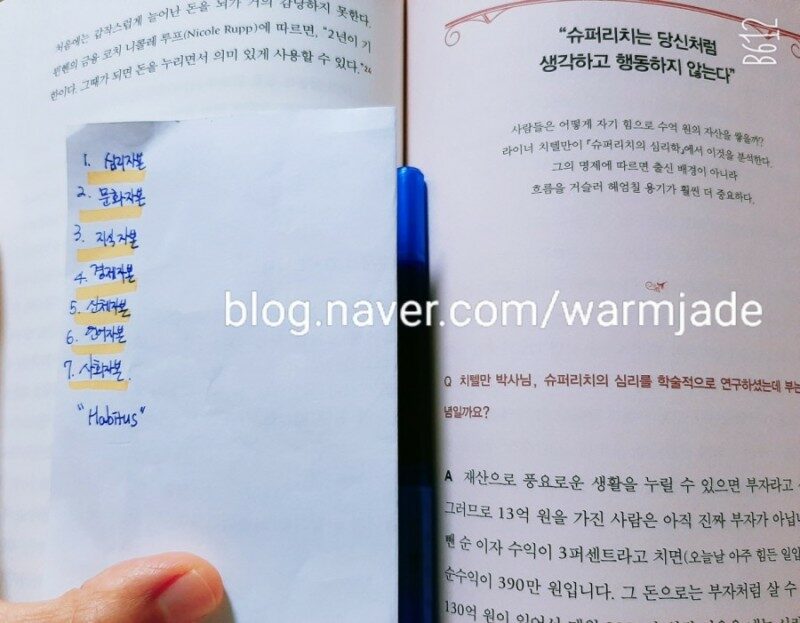 처음에는 갑작스럽게 늘어난 돈을 뇌가 거의 감당하지 못한다.
뮌헨의 금융 코치 니콜레 루프(Nicole Rupp)에 따르면, "2년이 기
한이다. 그때가 되면 돈을 누리면서 의미 있게 사용할 수 있다."24
1. 심리자본
2. 문화자본
3. 지식자본
4. 경제자본
5. 신체자본
6. 언어자본
7. 사회자본.
"Habitus"
"슈퍼리치는 당신처럼
생각하고 행동하지 않는다"
B612
사람들은 어떻게 자기 힘으로 수억 원의 자산을 쌓을까?
라이너 치텔만이 『슈퍼리치의 심리학』에서 이것을 분석한다.
그의 명제에 따르면 출신 배경이 아니라
흐름을 거슬러 헤엄칠 용기가 훨씬 더 중요하다.
blog.naver.com/warmjade
Q 치텔만 박사님, 슈퍼리치의 심리를 학술적으로 연구하셨는데 부는
념일까요?
A 재산으로 풍요로운 생활을 누릴 수 있으면 부자라고
그러므로 13억 원을 가진 사람은 아직 진짜 부자가 아닙니
뺀 순 이자 수익이 3퍼센트라고 치면(오늘날 아주 힘든 일입
순수익이 390만 원입니다. 그 돈으로는 부자처럼 살 수
130억 원이 있어서